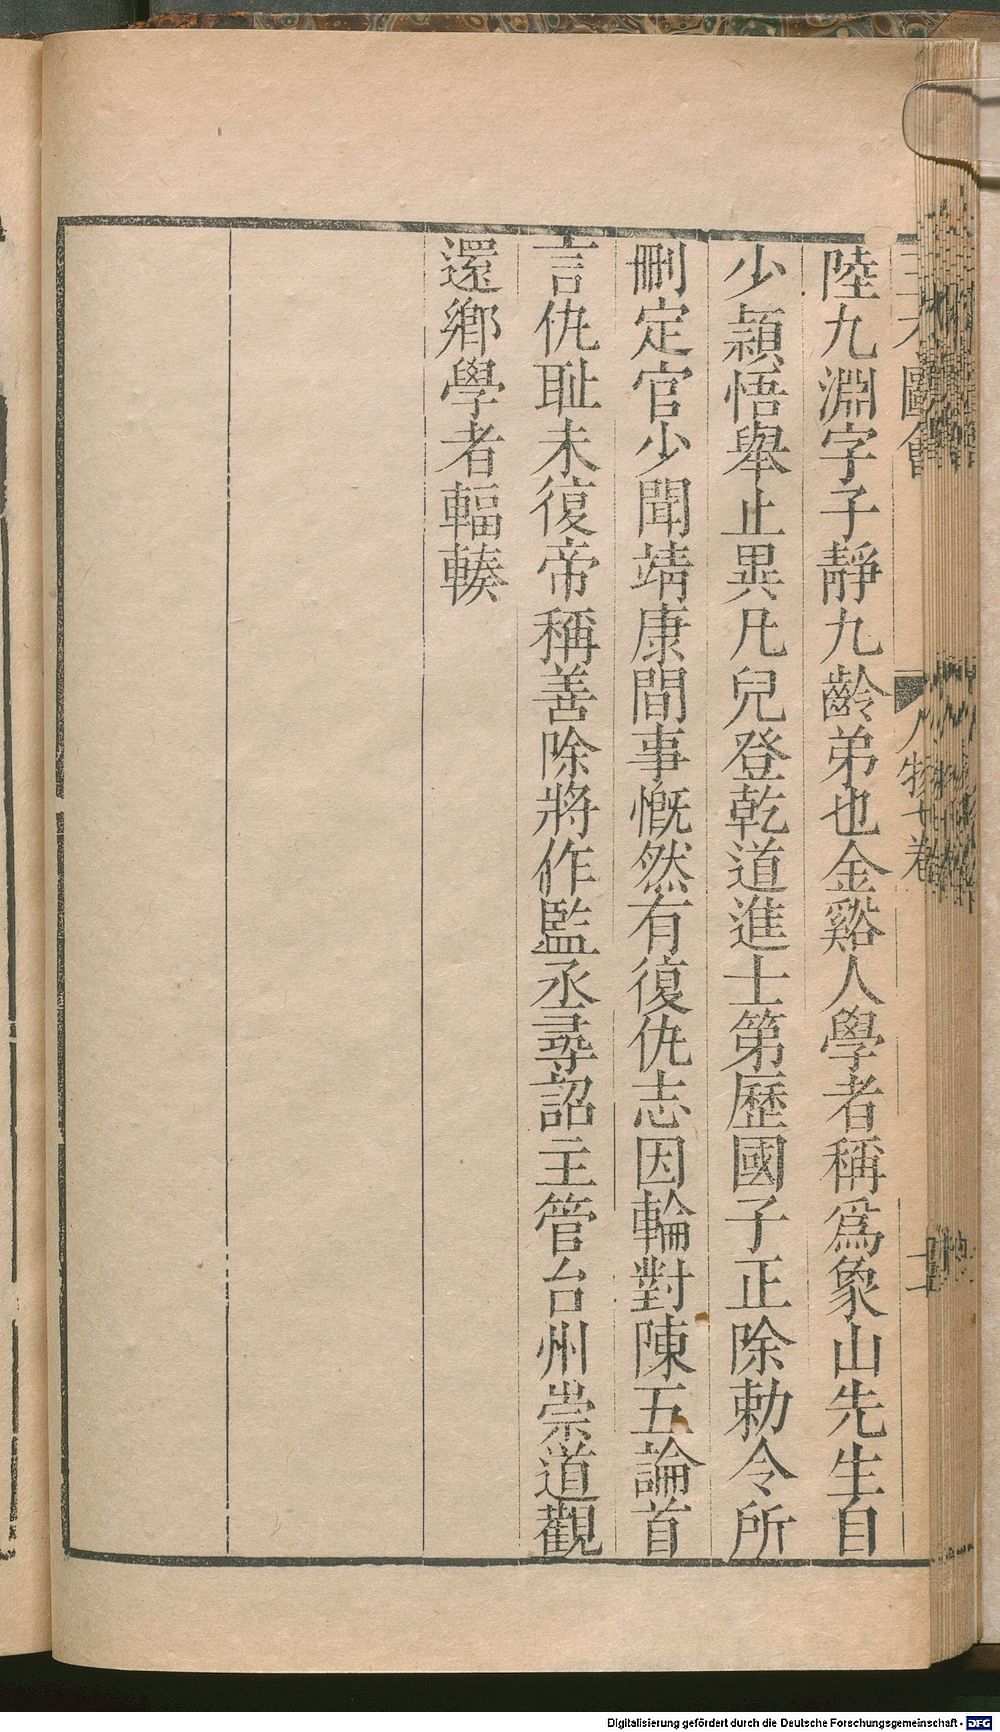 三才圖會
人物七卷
陸九淵字子靜九齡弟也金谿人學者稱爲象山先生自
少穎悟舉止異凡兒登乾道進士第歷國子正除勅令所
刪定官少聞靖康間事慨然有復仇志因輪對陳五論首
言仇耻未復帝稱善除將作監丞尋詔主管台州崇道觀
還鄉學者輻輳
Digitalisierung gefördert durch die Deutsche Forschungsgemeinschaft - DFG